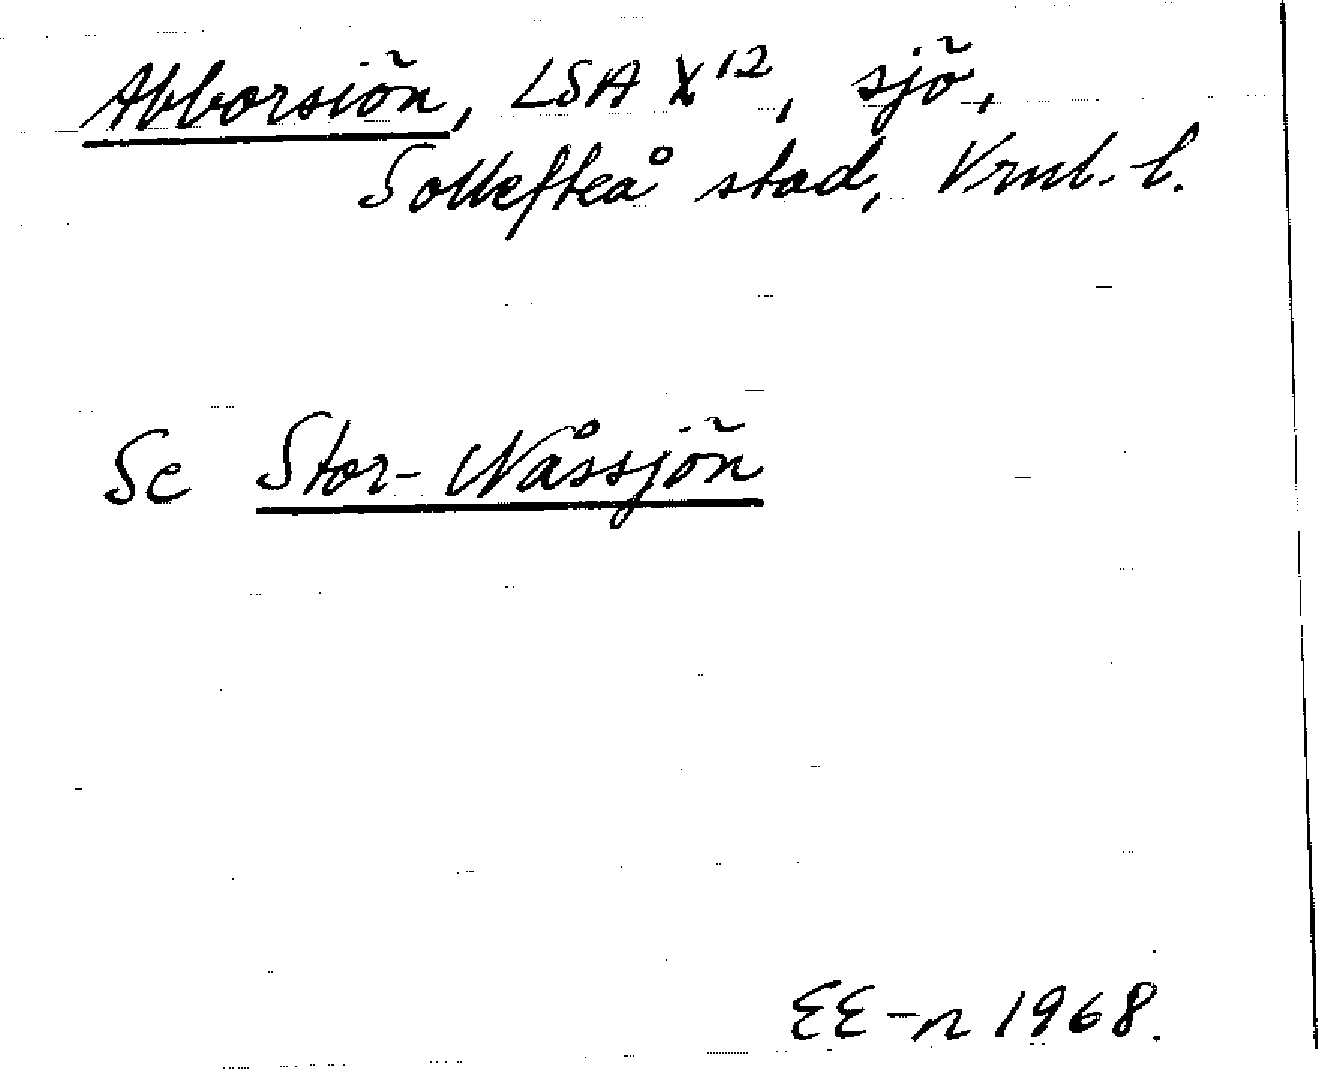 Abborsiön, LSA X12, sjö,
Sollefteå stad, Vrnl. l.
Se Stor-Nässjön
EE-n 1968.